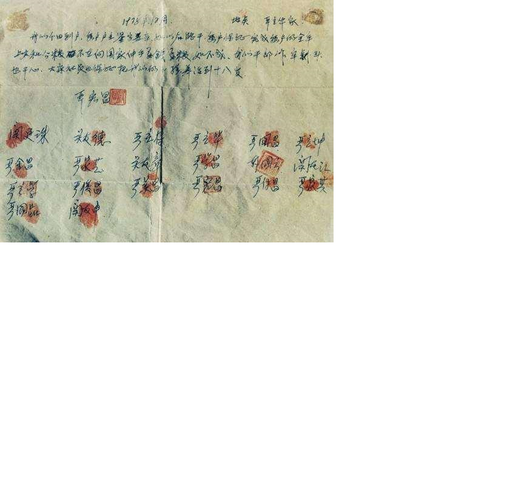 1978年12月 地点 严立华家
我们分田到户,每户户主签字盖章,如以后能干,每户保证完成每户的全年
上交和公粮,不在向国家伸手要钱要粮。如不成,我们干部作牢刹头
也干心,大家社员也保证把我们的小孩养活到十八岁
严宏昌
关廷珠 关友德 严立符 严立华 严国昌 严立坤
严金昌 严家芝 关友章 严学昌 韩国云 关友江
严立学 严俊昌 严美昌 严宏昌 严付昌 严家其
严国品 关友申